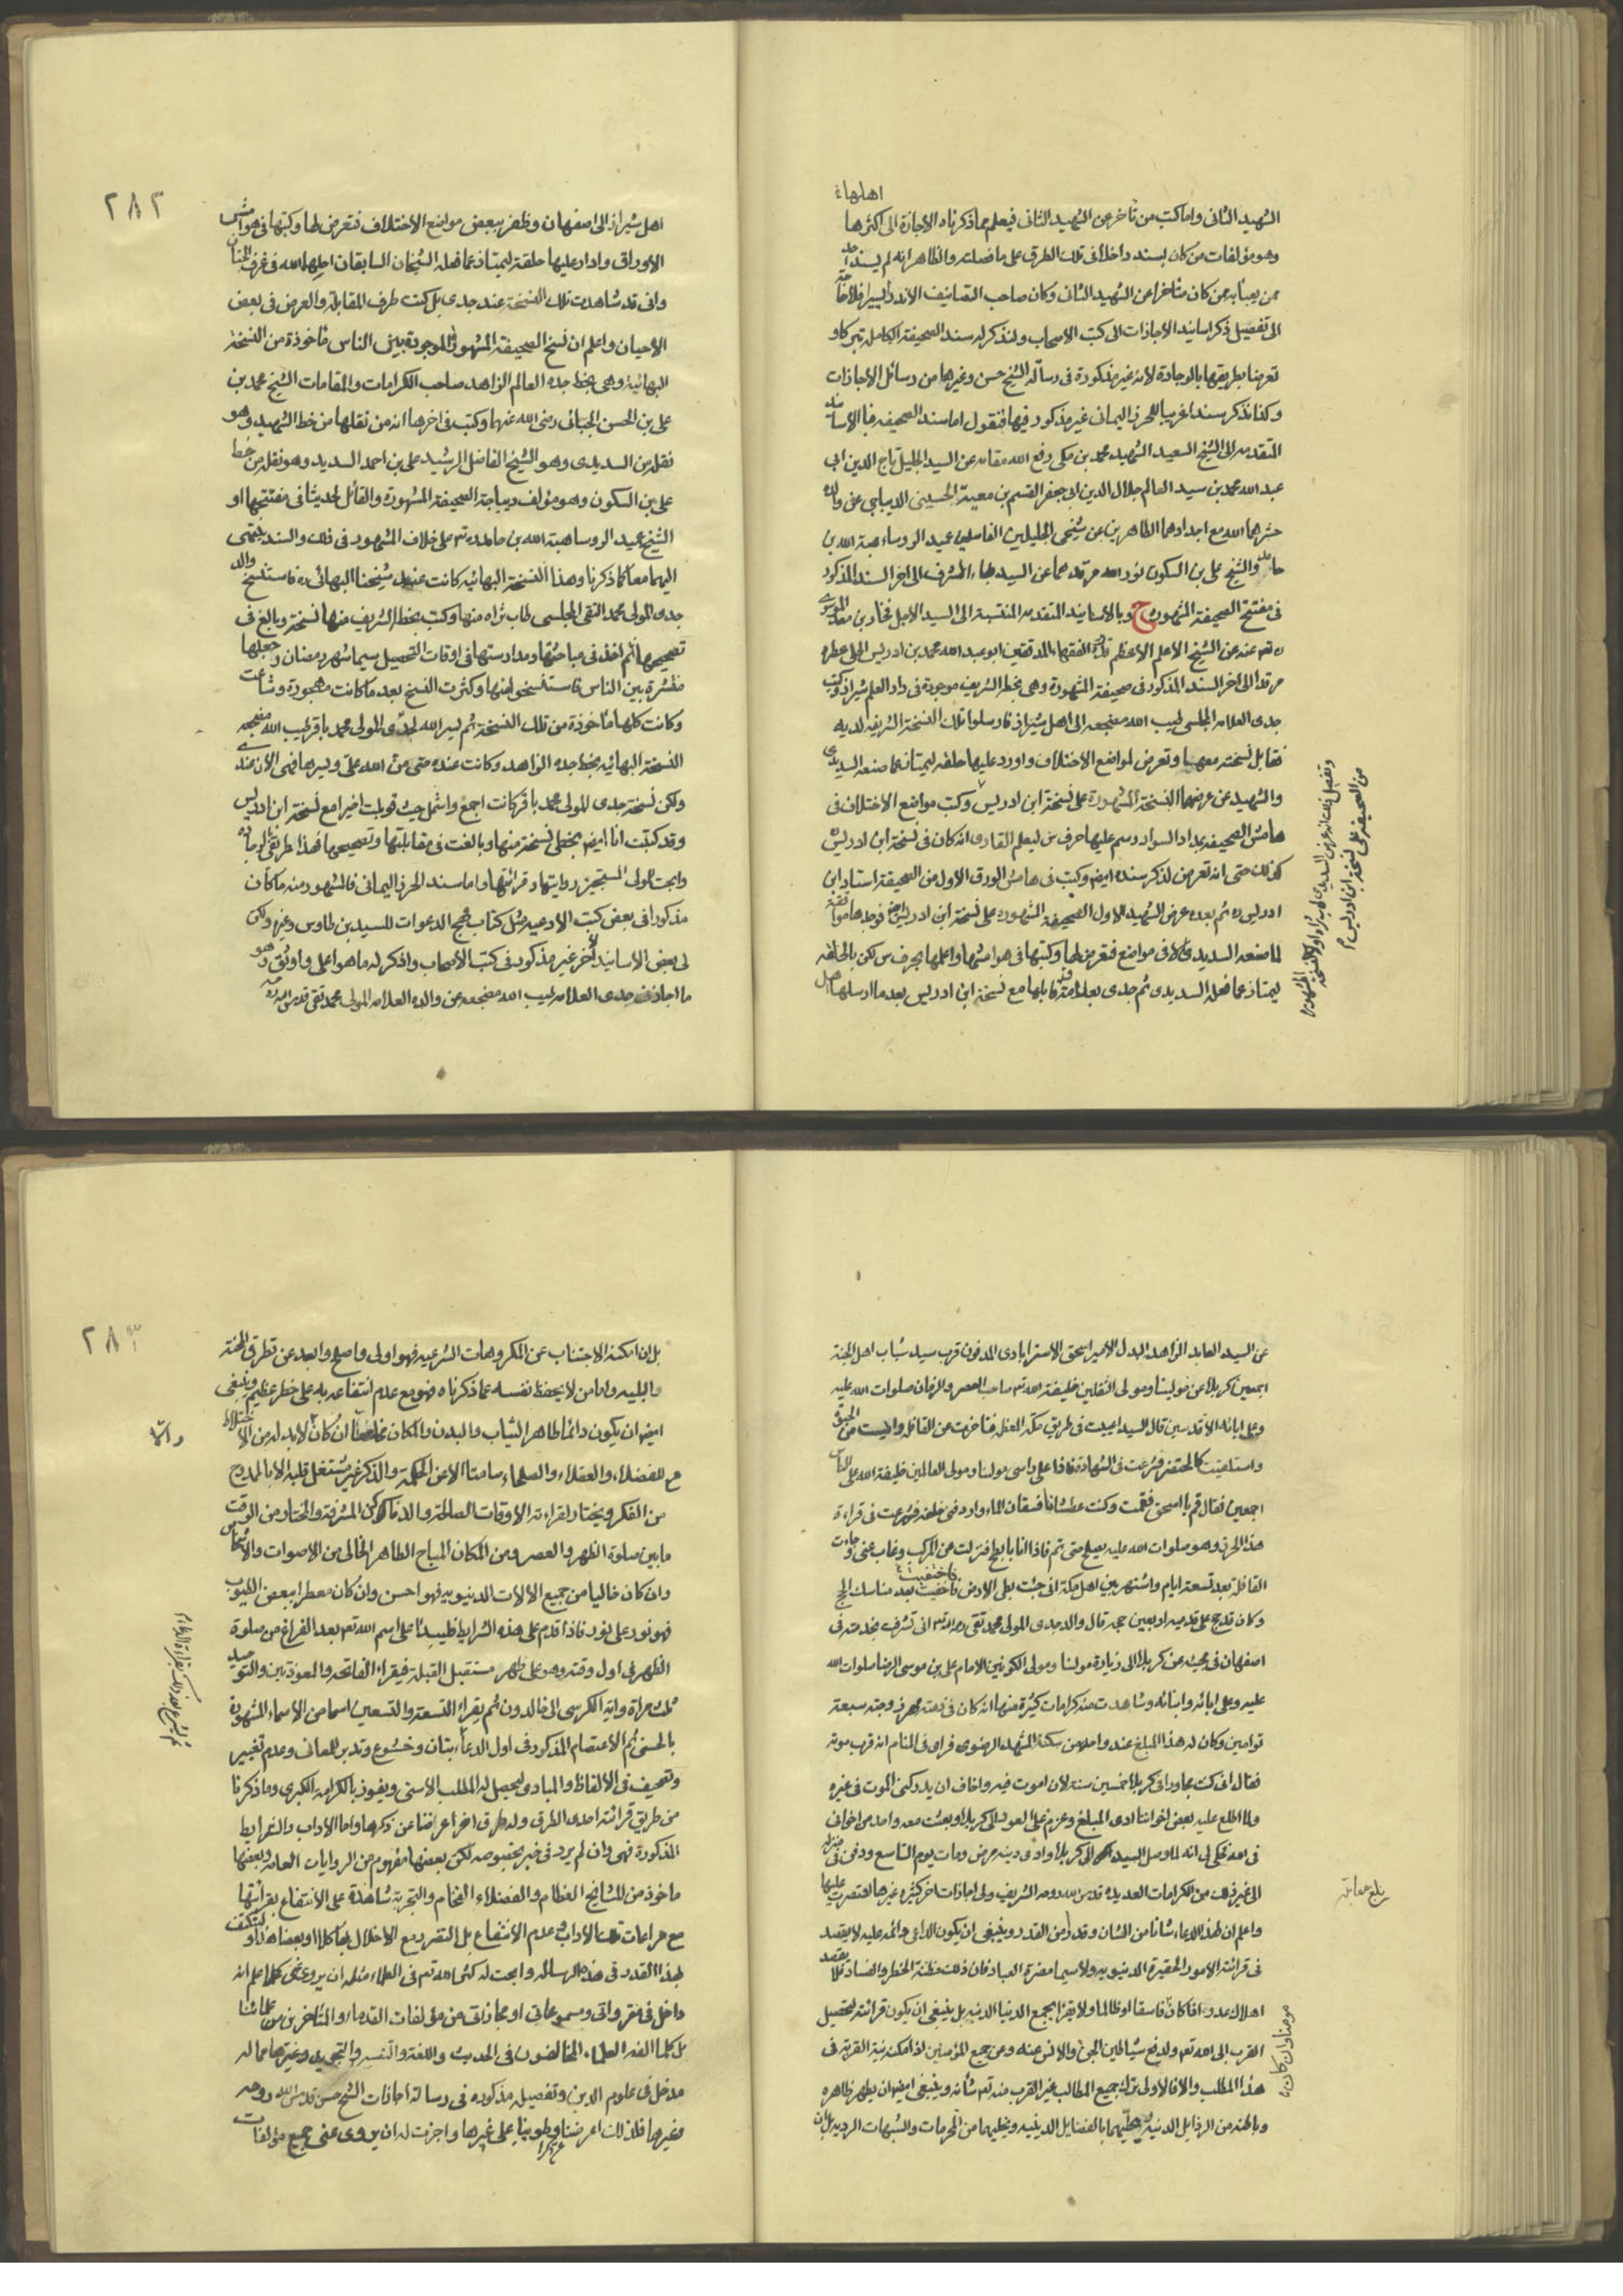 اهلها
الشهيد الثانى واما كتب من تأخر عن الشهيد الثانى فيعلم مما ذكرناه الاجازة الى اكثرها
وهو مؤلفات من كان بسند داخلا فى تلك الطرق على ما فصلته والظاهر انه لم يسند احد
ممن يعبأ به ممن كان متأخرا عن الشهيد الثانى وكان صاحب التصانيف الا نذر يسير فلا حاجة
الى تفصيل ذكر اسانيد الاجازات الى كتب الاصحاب ولنذكر له سند الصحيفة الكاملة تبركا و
تعرضنا بطريقها بالوجادة لانه غير مذكورة فى رسالة الشيخ حسن وغيرها من رسائل الاجازات
وكذا نذكر سندا غريبا للحرز اليمانى غير مذكور فيها فنقول اما سند الصحيفة فبالاسانيد
المتقدمه الى الشيخ السعيد الشهيد محمد بن مكى رفع الله مقامه عن السيد الجليل تاج الدين ابى
عبد الله محمد بن سيد العالم جلال الدين ابى جعفر القسم بن معية الحسينى الديباجى عن والده
حشرهما الله مع اجدادهما الطاهرين عن شيخى الجليلين الفاضلين عميد الروساء هبة الله بن
حامد والشيخ على بن السكون نور الله مرقدهما عن السيد بهاء الشرف الى اخر السند المذكور
فى مفتتح الصحيفة المشهوره ح وبالاسانيد المتقدمه المنتسبة الى السيد الاجل فخار بن معد الموسوى
ره عنه عن الشيخ الاعلم الاعظم قدوة الفقهاء المدققين ابو عبد الله محمد بن ادريس الحلى عطر
مرقده الى اخر السند المذكور فى صحيفة المشهورة وهى بخطه الشريف موجودة فى دار العلم شيراز وكتب
جدى العلامه المجلسى طيب الله مضجعه الى اهل شيراز فارسلوا تلك النسخة الشريفه لديه
فقابل نسخته معها وتعرض لمواضع الاختلاف واورد عليها حلقه ليمتاز عما صنعه السديدى
والشهيد عن عرضهما النسخة المشهورة على نسخة ابن ادريس وكتب مواضع الاختلاف فى
هامش الصحيفه بمداد السواد ورسم عليها حرف س ليعلم القارى انه كان فى نسخة ابن ادريس
كذلك حتى انه تعرض لذكر سنده ايضا وكتب فى هامش الورق الاول من الصحيفة اسناد ابن
ادريس ره ثم بعده عرض الشهيد الاول الصحيفة المشهوره على نسخة ابن ادريس ايضا فوجدها موافقة
لما صنعه السديدى الا فى مواضع فتعرض لها وكتبها فى هوامشها واعلمها بحرف س لكن بالحلقه
ليمتاز عما فعله السديدى ثم جدى العلامة قابلها مع نسخة ابن ادريس بعد ما ارسلها اهل
من الصحيفة على نسخة ابن ادريس
٢٨٢
اهل شيراز الى اصفهان وظفر ببعض مواضع الاختلاف فتعرض لها وكتبها فى هوامش
الاوراق وادار عليها حلقة ليمتاز عما فعله الشيخان السابقان احلهما الله فى غرف الجنان
وانى قد شاهدت تلك النسخة عند جدى بل كنت طرف المقابلة والعرض فى بعض
الاحيان واعلم ان نسخ الصحيفة المشهورة الموجودة بين الناس مأخوذة من النسخة
البهائية وهى بخط جده العالم الزاهد صاحب الكرامات والمقامات الشيخ محمد بن
على بن الحسن الجباعى رضى الله عنهما وكتب فى اخرها انه من نقلها من خط الشهيد وهو
نقله من السديدى وهو الشيخ الفاضل الرشيد على بن احمد السديد وهو نقله من خط
على بن السكون وهو مؤلف ديباجة الصحيفة المشهورة والقائل لحديثنا فى مفتتحها او
الشيخ عميد الروسا هبة الله بن حامد ره على خلاف المشهور فى ذلك والسند ينتهى
اليهما معا كما ذكرنا وهذا النسخة البهائيه كانت عند شيخنا البهائى ره فاستنسخ والد
جدى المولى محمد التقى المجلسى طاب ثراه منها وكتب بخطه الشريف منها نسخة وبالغ فى
تصحيحها ثم اخذ فى مباحثتها ومدارستها فى اوقات التحصيل سيما شهر رمضان وجعلها
منتشرة بين الناس فاستنسخوا منها وكثرت النسخ بعد ما كانت مهجورة وشاعت
وكانت كلها مأخوذة من تلك النسخة ثم يسر الله لجدى المولى محمد باقر طيب الله مضجعه
النسخة البهائيه بخط جده الزاهد وكانت عنده حتى من الله على ويسرها فهى الان عندى
ولكن نسخة جدى المولى محمد باقر كانت اجمع واشمل حيث قوبلت اخيرا مع نسخة ابن ادريس
وقد كتبت انا ايضا بخطى نسخة منها وبالغت فى مقابلتها وتصحيحها فهذا طريقى الى
وابحت للمولى المستجيز روايتها وقرائتها واما سند الحرز اليمانى فالمشهور منه ما كان
مذكورا فى بعض كتب الادعيه مثل كتاب مهج الدعوات للسيد بن طاوس وغيره ولكن
لى بعض الاسانيد لاخر غير مذكور فى كتب الاصحاب واذكر له ما هو اعلى واوثق وهو
ما اجازنى جدى العلامه طيب الله مضجعه عن والده العلامه المولى محمد تقى قدس الله
عن السيد العابد الزاهد البدل الامير اسحق الاسترابادى المدفون قرب سيد شباب اهل الجنة
اجمعين كربلا عن مولينا ومولى الثقلين خليفة الله صاحب العصر والزمان صلوات الله عليه
وعلى ابائه الاقدسين قال السيد اعييت فى طريق مكة المعظمه فتأخرت عن القافله وايست من الحيوة
واستلقيت كالمحتضر وشرعت فى الشهادة فاذا على راسى مولينا ومولى العالمين خليفة الله على الناس
اجمعين فقال قم يا اسحق فقمت وكنت عطشانا فسقانى الماء واردفنى خلفه فشرعت فى قراءة
هذا الحرز وهو صلوات الله عليه يصلح حتى تم فاذا انا بابطح فنزلت عن المركب وغاب عنى وجاءت
القافلة بعد تسعة ايام واشتهر بين اهل مكة انى جئت بطى الارض فاختفيت بعد مناسك الحج
وكان قد حج على قدميه اربعين حجه قال والد جدى المولى محمد تقى ره انى تشرفت بخدمته فى
اصفهان فى مجيئه عن كربلا الى زيارة مولينا ومولى الكونين الامام على بن موسى الرضا صلوات الله
عليه وعلى ابائه وابنائه وشاهدت منه كرامات كثيرة منها انه كان فى ذمته مهر زوجته سبعة
توامين وكان له هذا المبلغ عند واحد من سكنة المشهد الرضوى فراى فى المنام انه قرب موته
فقال انى كنت مجاورا فى كربلا خمسين سنة لان اموت فيه واخاف ان يدركنى الموت فى غيره
ولما اطلع عليه بعض اخواننا ادى المبلغ وعزم على العود الى كربلا وبعثت معه واحد من اخوانى
فى الله فحكى لى انه لما وصل السيد الى كربلا وادى دينه مرض ومات يوم التاسع ودفن فى منزله
الى غير ذلك من الكرامات العديده قدس الله روحه الشريف ولى اجازات اخر كثيره غيرها اقتصرت عليها
واعلم ان لهذا الدعاء شانا من الشان وقدرا من القدر وينبغى ان يكون الداعى مواظبه عليه لا يقصد
فى قرائته الامور الحقيرة الدنيويه ولا سيما مضرة العباد فان ذلك مظنة الخطر والفساد فلا يقصد
اهلاك عدوه اذا كان فاسقا او ظالما ولا يقرأ بجمع الدنيا الدنيه بل ينبغى ان يكون قرائته لتحصيل
القرب الى الله تع ولدفع شياطين الجن والانس عنه وعن جميع المؤمنين اذا امكنه نية القربة فى
هذا المطلب والا فالاولى ترك جميع المطالب غير القرب منه تع شأنه وينبغى ايضا ان يطهر ظاهره
وباطنه من الرذايل الدنيه ويحليهما بالفضايل الدينيه ويخليهما من المحرمات والشبهات الرديه بل ان
بلغ مقابلة
مومنا وان كان
٢٨٣
بل ان امكنه الاجتناب عن المكروهات الشرعيه فهو اولى واصلح وابعد عن تطرق المحنة
والبليه واما من لا يحفظ نفسه عما ذكرناه فهو مع عدم انتفاعه به على خطر عظيم وينبغى
ايضا ان يكون دائما طاهر الثياب والبدن والمكان مخالطا ان كان لا بد له من الاختلاط
مع الفضلاء والعقلاء والصلحاء صامتا الا عن الحكمة والذكر غير مشتغل قلبه الا بالممدوح
من الفكر ويختار لقراءته الاوقات الصالحة والاماكن المشرفة والمختار من الوقت
ما بين صلوة الظهر والعصر ومن المكان المباح الطاهر الخالى من الاصوات والاشخاص
وان كان خاليا من جميع الالات الدنيويه فهو احسن وان كان معطرا ببعض الطيوب
فهو نور على نور فاذا قدم على هذه الشرايط فليبدأ على اسم الله تع بعد الفراغ من صلوة
الظهر فى اول وقته وهو على طهر مستقبل القبلة فيقراء الفاتحه والمعوذتين والتوحيد
ثلث مراة واية الكرسى الى خالدون ثم يقراء التسعة والتسعين اسما من الاسماء المشهورة
بالحسنى ثم الاعتصام المذكور فى اول الدعاء بتان وخشوع وتدبر للمعانى وعدم تغيير
وتصحيف فى الالفاظ والمبادى ليحصل له المطلب الاسنى ويفوز بالكرامة الكبرى وما ذكرنا
من طريق قرائته احدى الطرق وله طرق اخر اعرضنا عن ذكرها واما الاداب والشرايط
المذكورة فهى وان لم يرد فى خبر بخصوصه لكن بعضها مفهوم من الروايات العامه وبعضها
ماخوذ من المشايخ العظام والفضلاء الفخام والتجربة شاهدة على الانتفاع بقرائتها
مع مراعات تلك الاداب وعدم الانتفاع بل التضرر مع الاخلال بها كلا او بعضا
لهذا القدر فى هذه الرساله وابحت له كثر الله تع فى العلماء مثله ان يروى عنى كلما علم انه
داخل فى مقرواتى ومسموعاتى او مجازاتى من مؤلفات القدماء والمتأخرين من علمائنا
بل كلما الفه العلماء المخالفون فى الحديث واللغة والتفسير والتجويد وغيرها مما له
مدخل فى علوم الدين وتفصيل مذكوره فى رسالة اجازات الشيخ حسن قدس الله روحه
وغيرها فلذلك اعرضنا وطوينا على غيرها واجزت له ان يروى عنى جميع مؤلفات